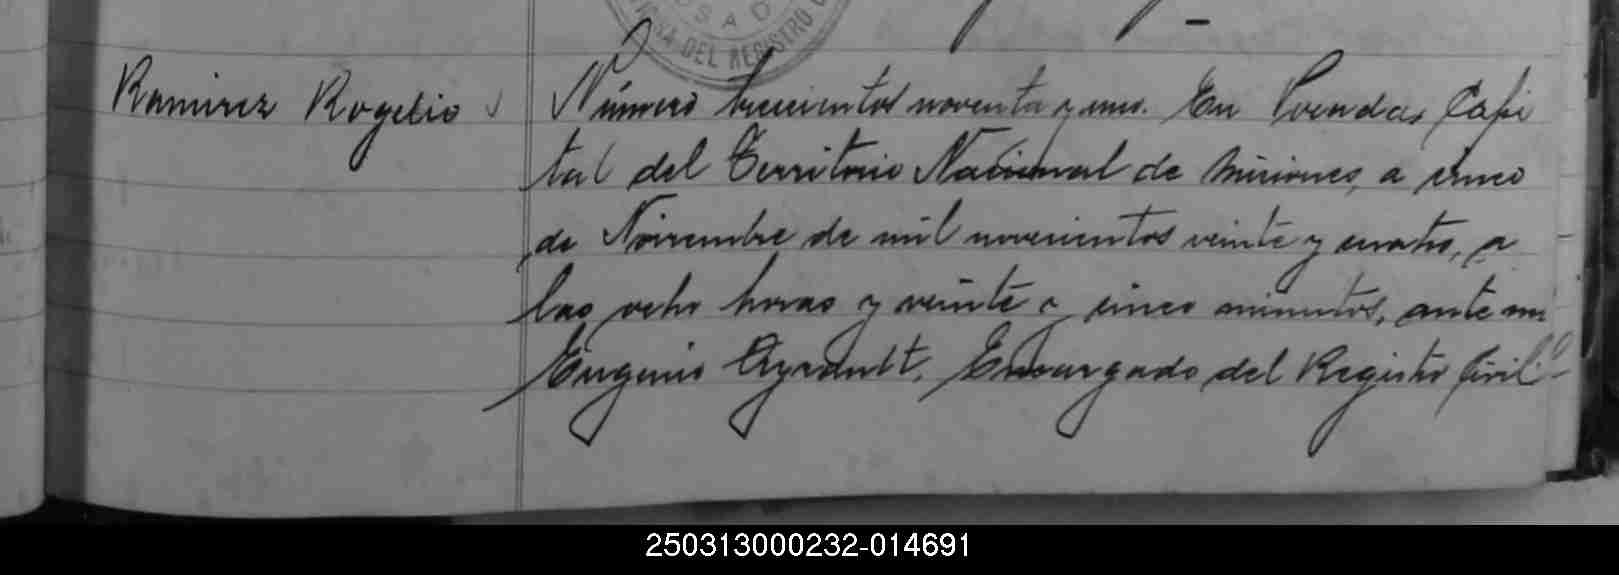 POSAD
OFICINA DEL REGISTRO C
Ramirez Rogelio
Número trescientos noventa y uno. En Posadas, Capi
tal del Territorio Nacional de Misiones, a cinco
de Noviembre de mil novecientos veinte y cuatro, a
las ocho horas y veinte y cinco minutos, ante mi
Eugenio Ayrault, Encargado del Registro Civil
250313000232-014691